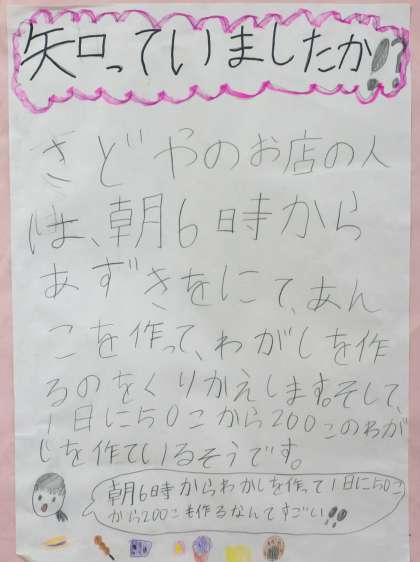 知っていましたか!?
さどやのお店の人
は、朝6時から
あずきをにて、あん
こを作って、わがしを作
るのをくりかえします。そして、
1日に50こから200このわが
しを作ているそうです。
朝6時からわがしを作って1日に50こ
から200こも作るなんてすごい!!